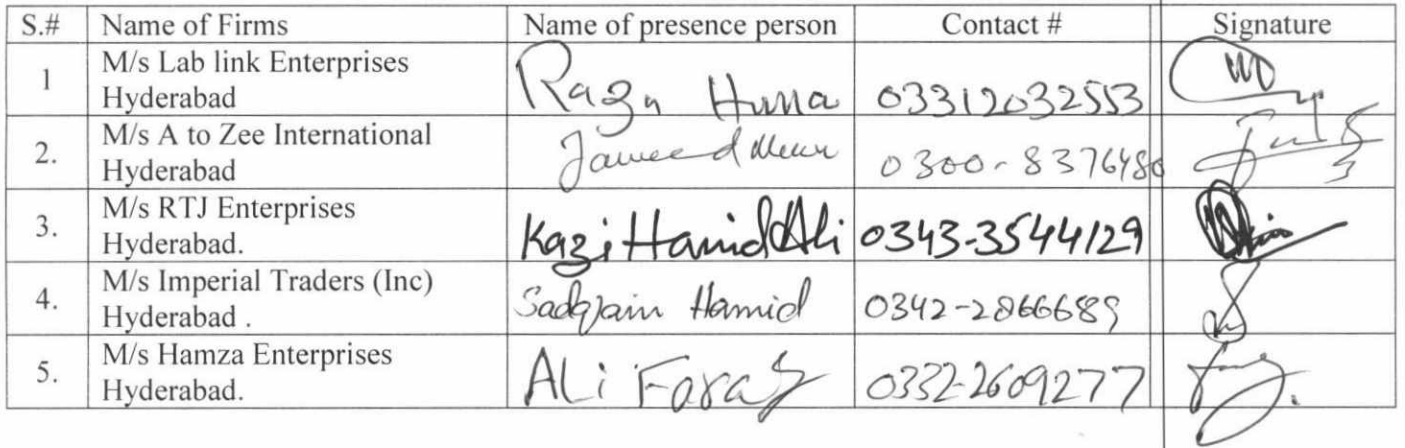 S.# Name of Firms Name of presence person Contact # Signature
1 M/s Lab link Enterprises
Hyderabad Raza 03312032553
2. M/s A to Zee International
Hyderabad Jaweed 0300-8376480
3. M/s RTJ Enterprises
Hyderabad. Kazi Hamid Ali 0343-3544129
4. M/s Imperial Traders (Inc)
Hyderabad . Hamid 0342-2866689
5. M/s Hamza Enterprises
Hyderabad. ALi Faraz 0332-2609277